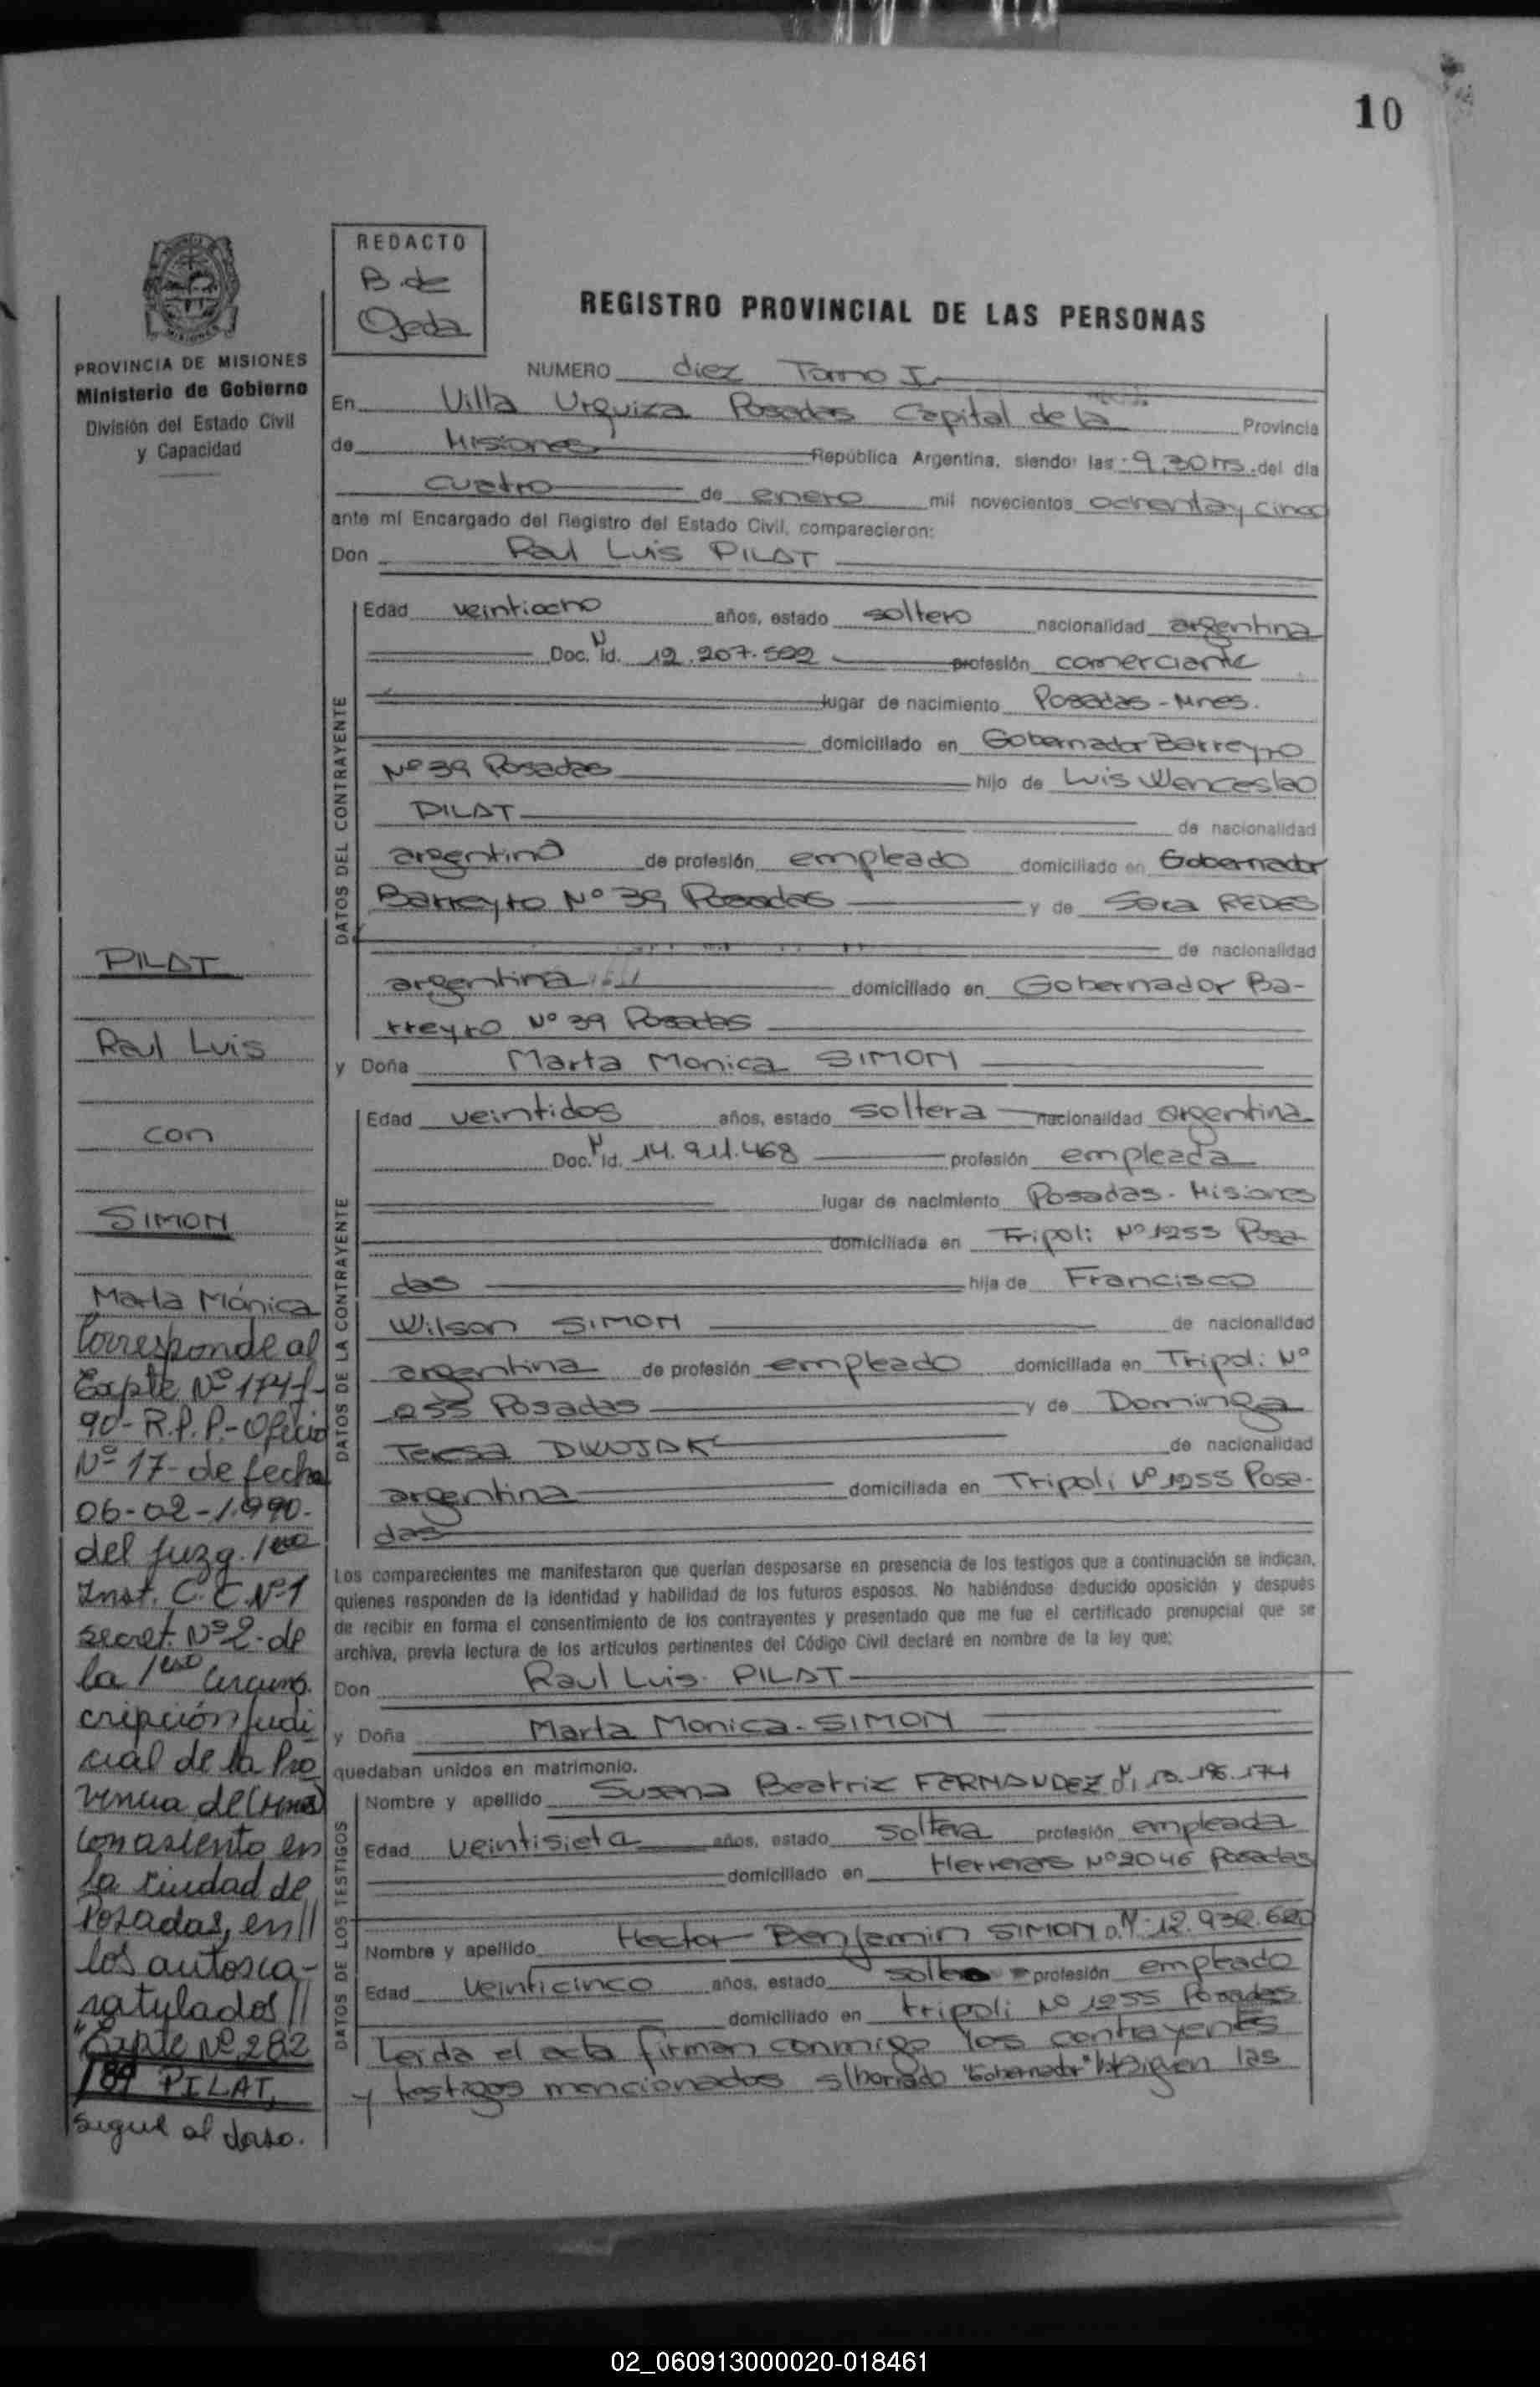 10
REDACTO
B. de
Ojeda
PROVINCIA DE MISIONES
Ministerio de Gobierno
División del Estado Civil
y Capacidad
REGISTRO PROVINCIAL DE LAS PERSONAS
NUMERO diez Tomo I
En Villa Urquiza Posadas Capital de la Provincia
de Misiones República Argentina, siendo las 9,30 hs. del día
cuatro de enero mil novecientos ochenta y cinco
ante mí Encargado del Registro del Estado Civil, comparecieron:
Don Raul Luis PILAT
DATOS DEL CONTRAYENTE
Edad veintiocho años, estado soltero nacionalidad argentina
Doc. N Id. 12.207.502 profesión comerciante
lugar de nacimiento Posadas - Mnes.
domiciliado en Gobernador Barreyro
Nº 39 Posadas hijo de Luis Wenceslao
PILAT de nacionalidad
argentino de profesión empleado domiciliado en Gobernador
Barreyro Nº 39 Posadas y de Sara REDES
de nacionalidad
argentina domiciliado en Gobernador Ba-
rreyro Nº 39 Posadas
y Doña Marta Monica SIMON
DATOS DE LA CONTRAYENTE
Edad veintidos años, estado soltera nacionalidad argentina
Doc. N Id. 14.911.468 profesión empleada
lugar de nacimiento Posadas - Misiones
domiciliada en Tripoli Nº 1255 Posa-
das hija de Francisco
Wilson SIMON de nacionalidad
argentina de profesión empleado domiciliada en Tripoli Nº
255 Posadas y de Dominga
Teresa de nacionalidad
argentina domiciliada en Tripoli Nº 1255 Posa-
das
Los comparecientes me manifestaron que querían desposarse en presencia de los testigos que a continuación se indican,
quienes responden de la identidad y habilidad de los futuros esposos. No habiéndose deducido oposición y después
de recibir en forma el consentimiento de los contrayentes y presentado que me fue el certificado prenupcial que se
archiva, previa lectura de los artículos pertinentes del Código Civil declaré en nombre de la ley que:
Don Raul Luis PILAT
y Doña Marta Monica - SIMON
quedaban unidos en matrimonio.
DATOS DE LOS TESTIGOS
Nombre y apellido Susana Beatriz FERNANDEZ 13.196.174
Edad veintisiete años, estado soltera profesión empleada
domiciliado en Herreras Nº 2046 Posadas
Nombre y apellido Hector Benjamin SIMON D.N. 12.932.620
Edad veinticinco años, estado soltero profesión empleado
domiciliado en tripoli Nº 1255 Posadas
Leida el acta firman conmigo los contrayentes
y testigos mencionados s/borrado "Gobernador" siguen las
PILAT
Raul Luis
con
SIMON
Marta Mónica
Corresponde al
Expte Nº 174 f-
90- R.P.P.- Oficio
Nº 17- de fecha
06-02-1.990-
del Juzg. 1era
Inst. C.C. Nº 1
Secret. Nº 2- de
la 1era Circuns
cripción Judi
cial de la Pro
vincia de (Mnes)
con asiento en
la ciudad de
Posadas, en //
los autos ca-
ratulados //
"Expte Nº 282
/89 PILAT,
Sigue al dorso.
02_060913000020-018461